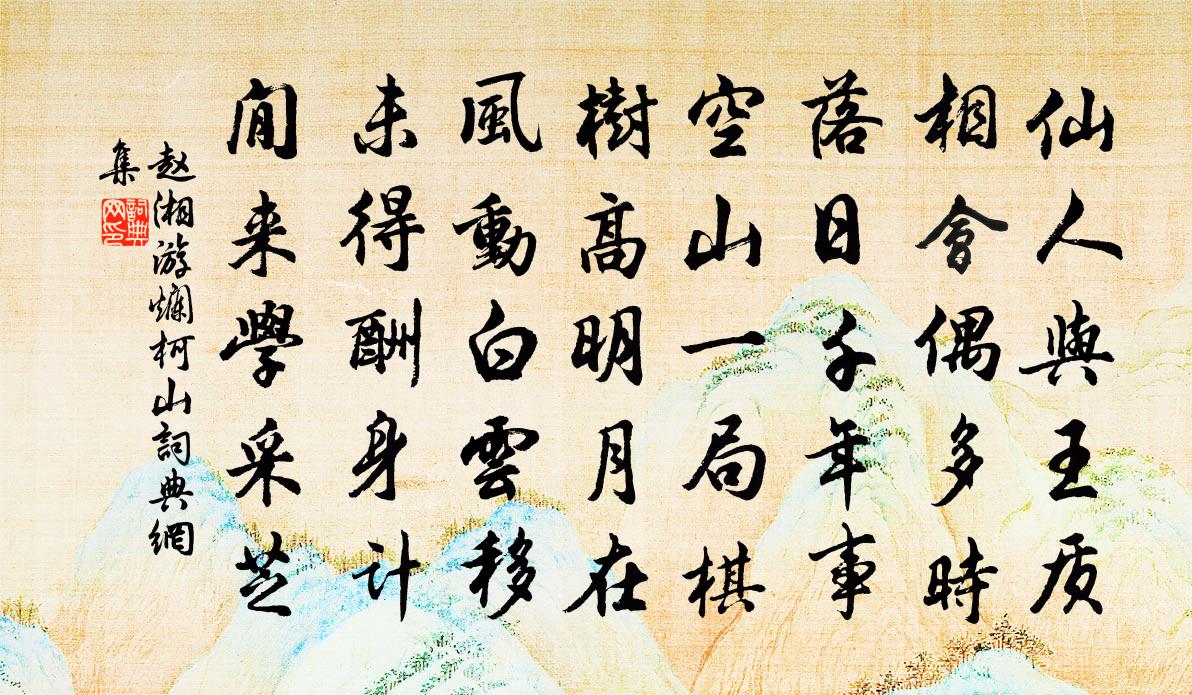 仙人與王质
相會偶多時
落日千年事
空山一局棋
樹高明月在
風動白雲移
未得酬身計
閒来學采芝
赵湘游爛柯山詞典網
集
詞典
网印